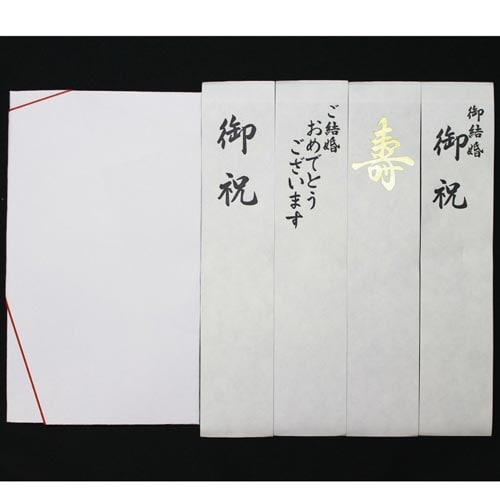 御結婚
御祝
寿
ご結婚
おめでとう
ございます
御祝